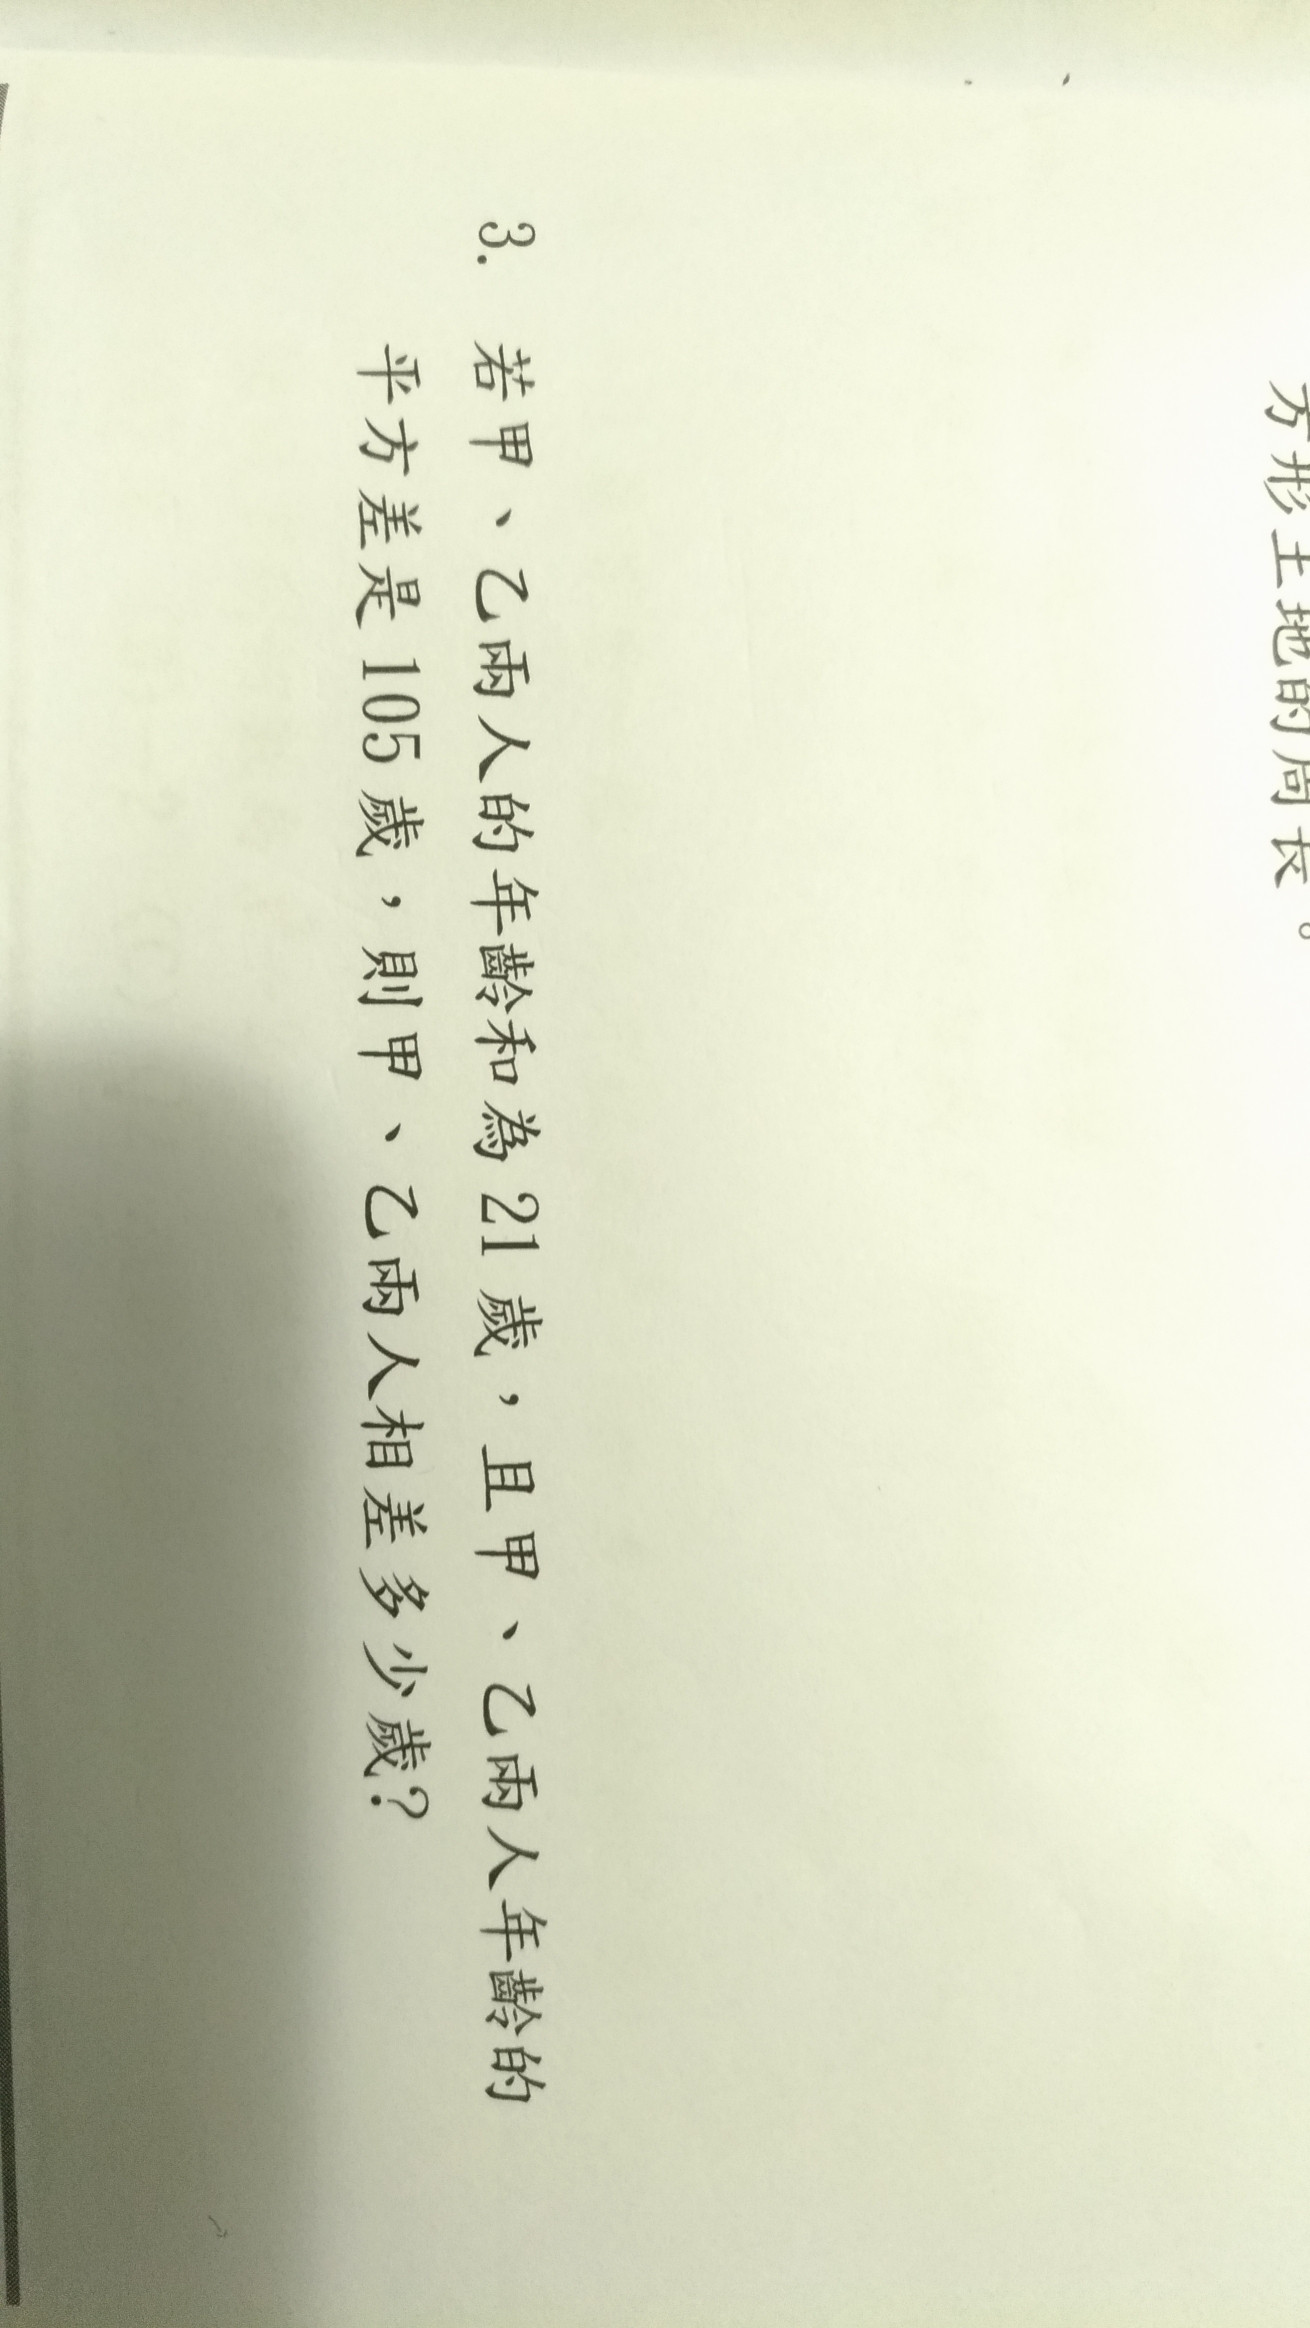 方形土地的周長。
3. 若甲、乙兩人的年齡和為21歲，且甲、乙兩人年齡的
平方差是105歲，則甲、乙兩人相差多少歲？